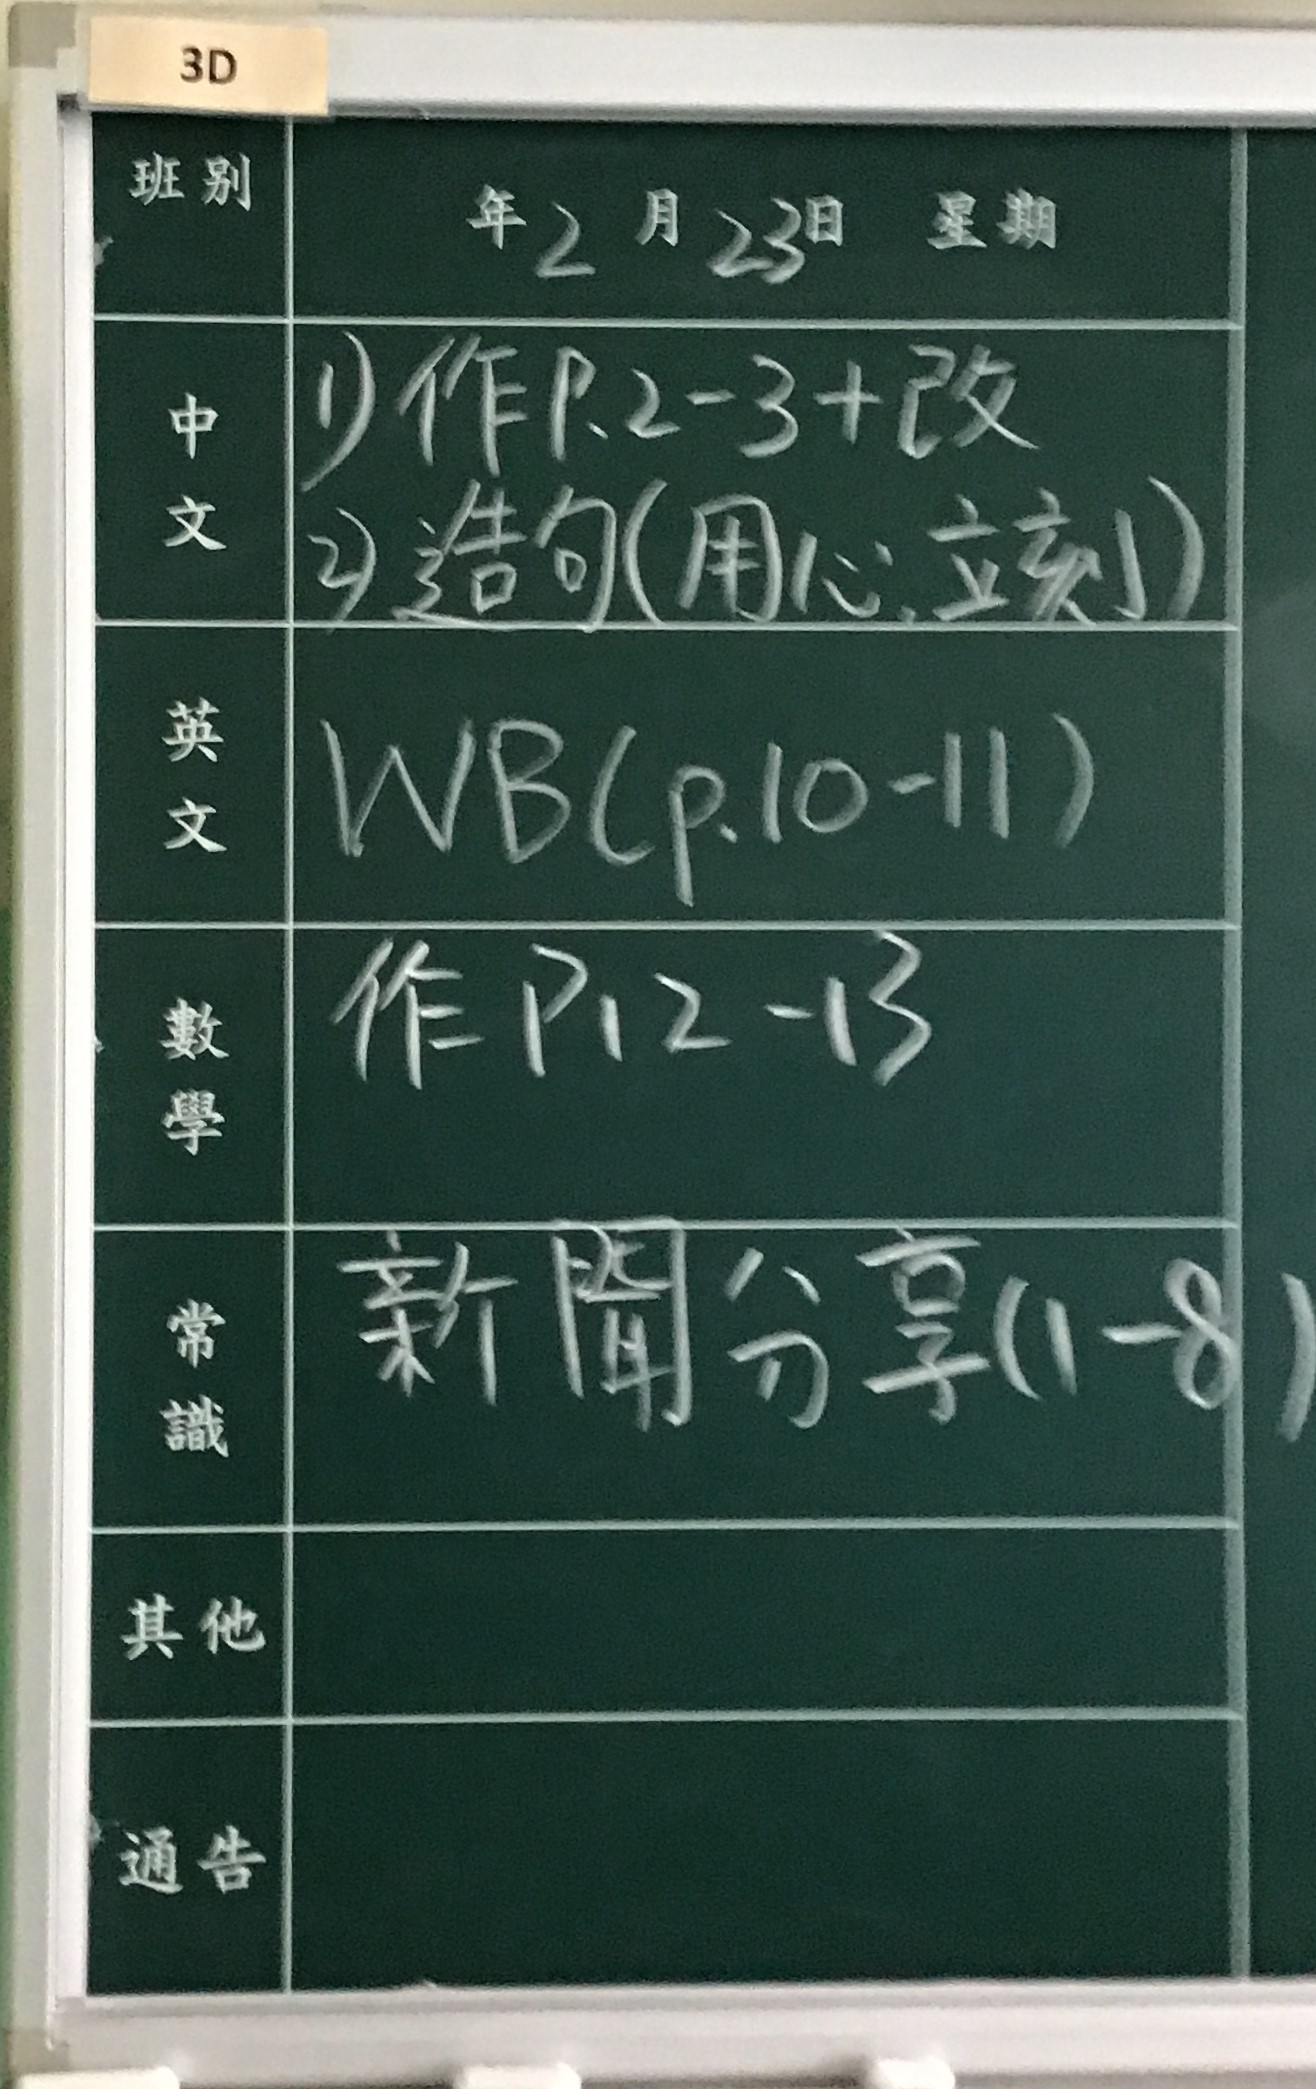 3D
班別
年2月23日 星期
中文
1) 作P.2-3+改
2) 造句(用心、立刻)
英文
WB(p.10-11)
數學
作 P12-13
常識
新聞分享(1-8)
其他
通告